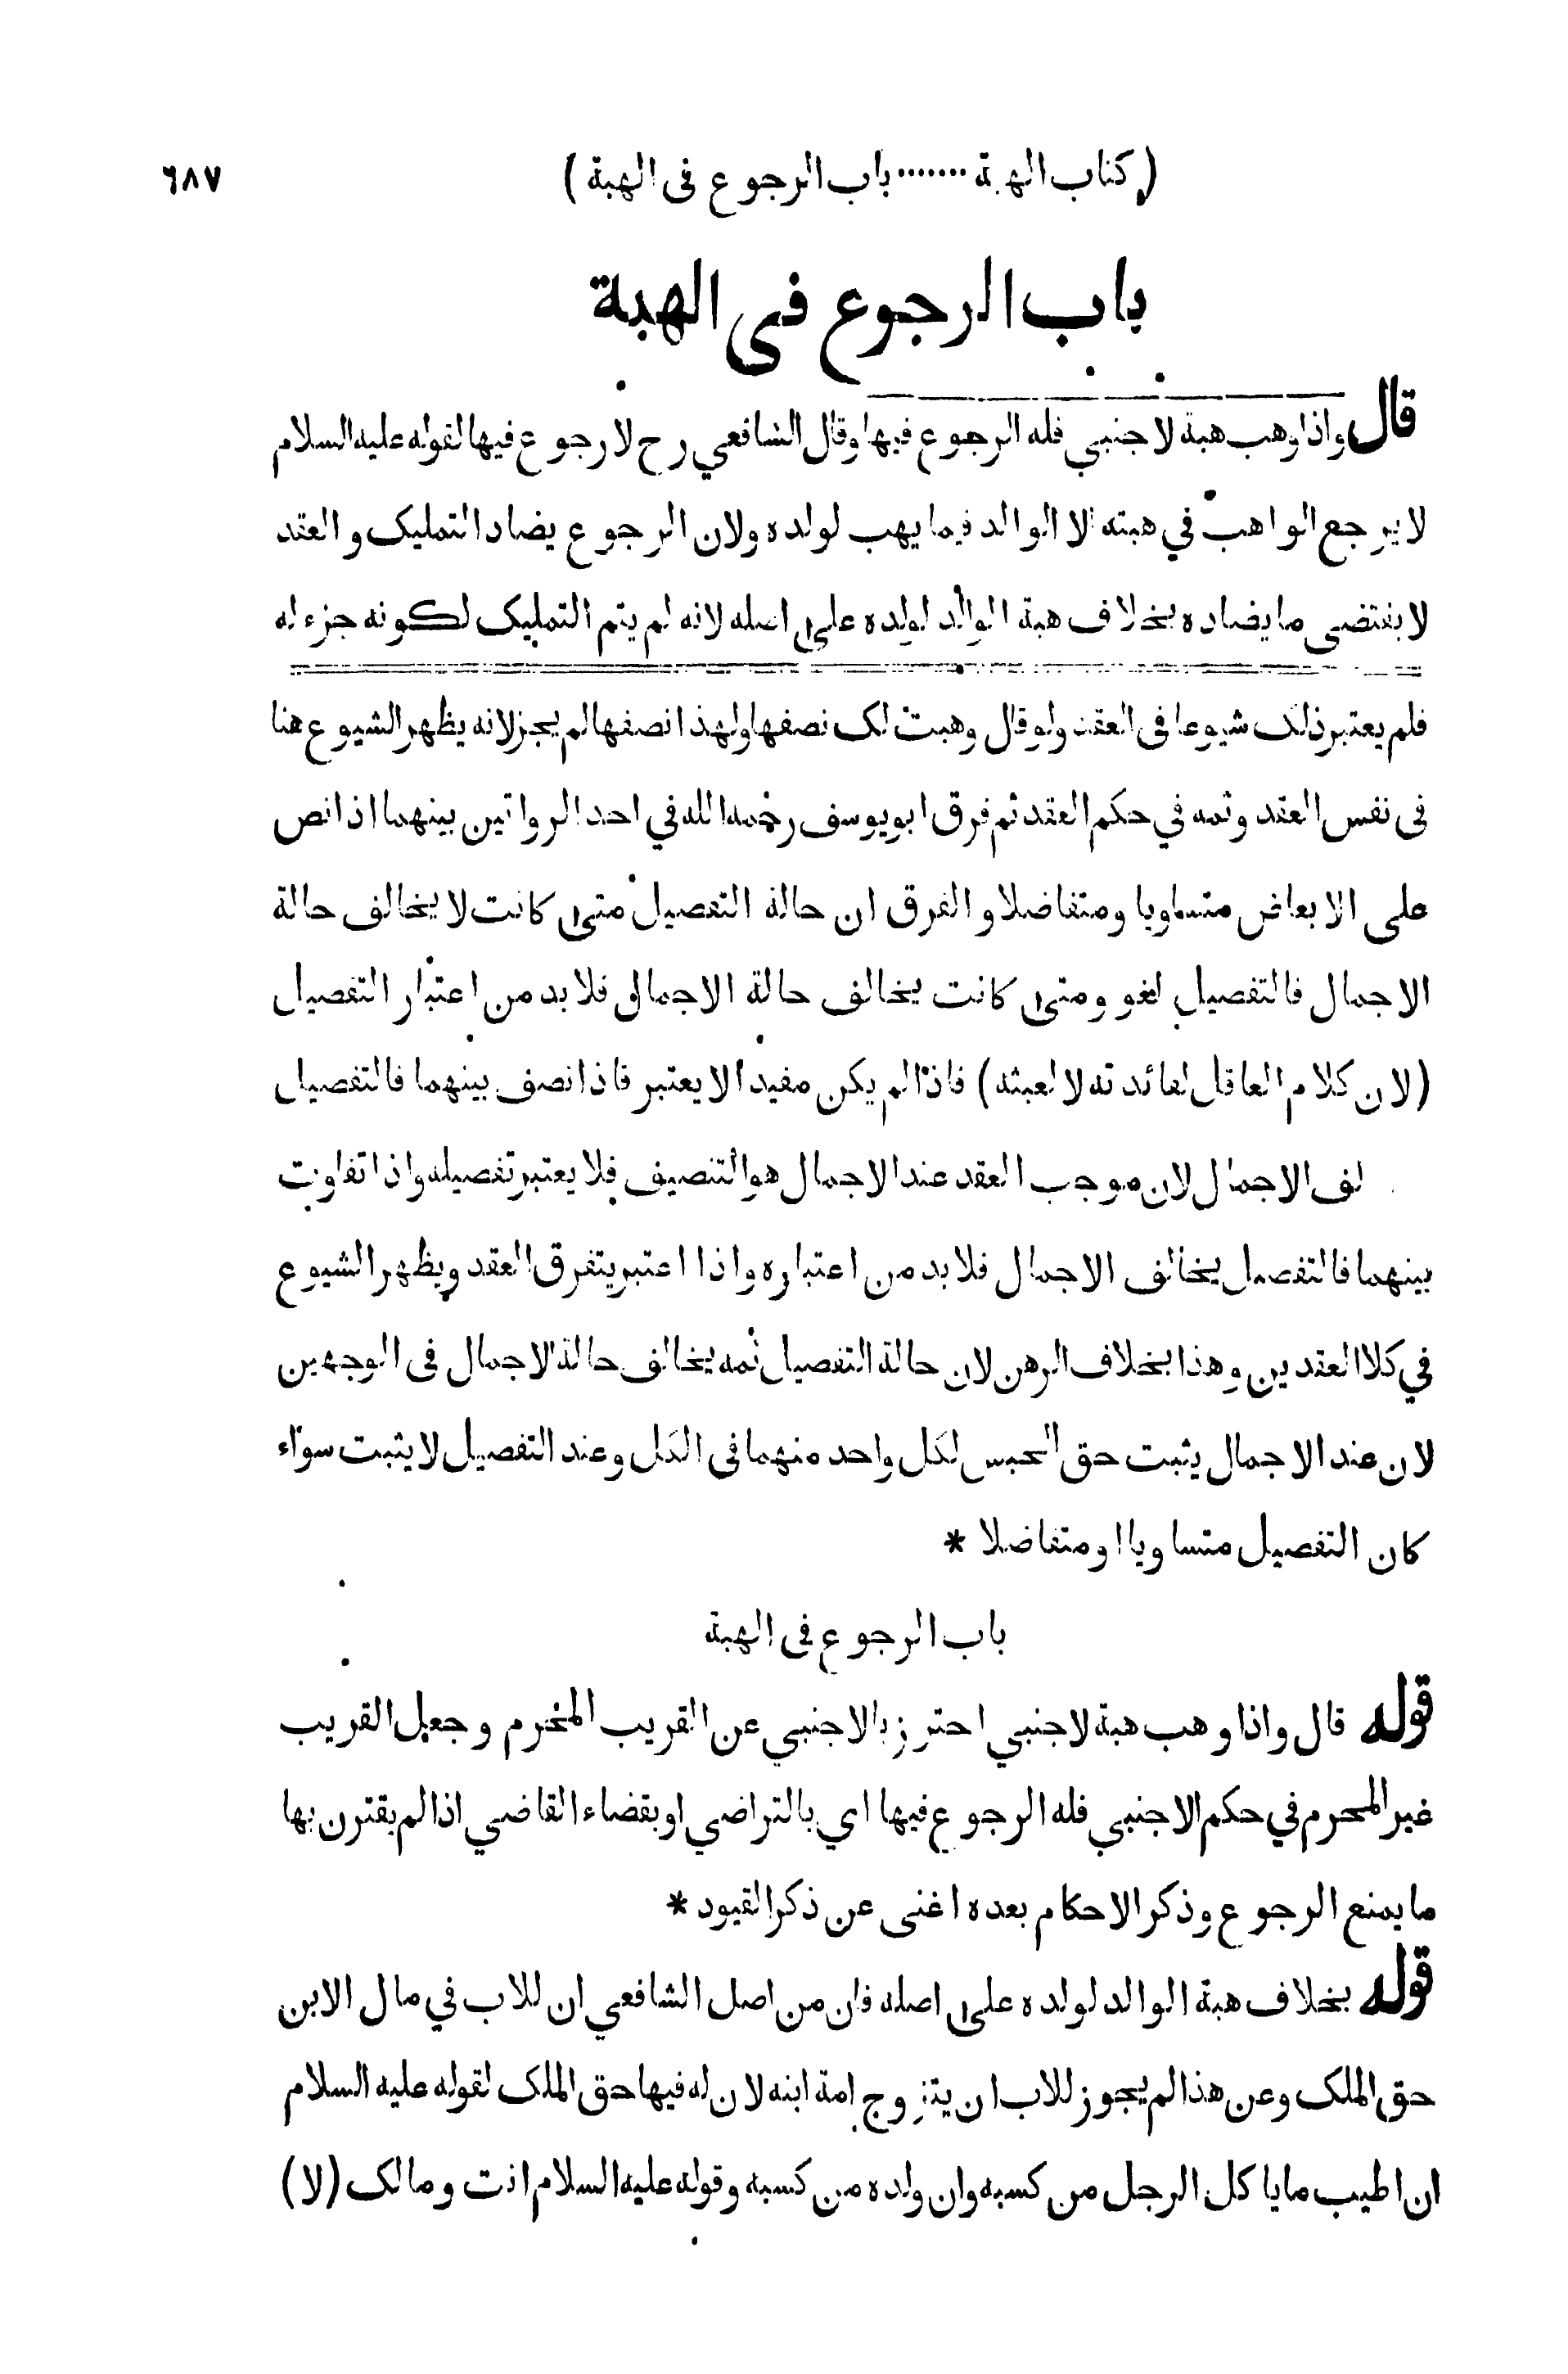 (كتاب الهبة ······· باب الرجوع فى الهبة) ٦٨٧
باب الرجوع فى الهبة
قال واذا وهب هبة لاجنبي فله الرجوع فيها وقال الشافعي رح لا رجوع فيها لقوله عليه السلام
لا يرجع الواهب في هبته الا الوالد فيما يهب لولده ولان الرجوع يضاد التمليك والعقد
لا يقتضى ما يضاده بخلاف هبة الوالد لولده على اصله لانه لم يتم التمليك لكونه جزء له
فلم يعتبر ذلك شيوعا فى العقد ولو قال وهبت لك نصفها ولهذا نصفها لم يجز لانه يظهر الشيوع هنا
فى نفس العقد وثمه في حكم العقد ثم فرق ابو يوسف رحمه الله في احد الرواتين بينهما اذا نص
على الابعاض متساويا ومتفاضلا والفرق ان حالة التفصيل متى كانت لا يخالف حالة
الاجمال فالتفصيل لغو ومتى كانت يخالف حالة الاجمال فلا بد من اعتبار التفصيل
(لان كلام العاقل لفائدته لا لعبثه) فاذا لم يكن مفيدا لا يعتبر فاذا نصف بينهما فالتفصيل
لف الاجمال لان موجب العقد عند الاجمال هو التنصيف فلا يعتبر تفصيله واذا تفاوت
بينهما فالتفصيل يخالف الاجمال فلا بد من اعتباره واذا اعتبر يتفرق العقد ويظهر الشيوع
في كلا العقدين وهذا بخلاف الرهن لان حالة التفصيل ثمه يخالف حالة الاجمال فى الوجهين
لان عند الاجمال يثبت حق الحبس لكل واحد منهما فى الكل وعند التفصيل لا يثبت سواء
كان التفصيل متساويا او متفاضلا *
باب الرجوع فى الهبة
قوله قال واذا وهب هبة لاجنبي احترز بالاجنبي عن القريب المحرم وجعل القريب
غير المحرم في حكم الاجنبي فله الرجوع فيها اي بالتراضي او بقضاء القاضي اذا لم يقترن بها
ما يمنع الرجوع وذكر الاحكام بعده اغنى عن ذكر القيود *
قوله بخلاف هبة الوالد لولده على اصله فان من اصل الشافعي ان للاب في مال الابن
حق الملك وعن هذا لم يجوز للاب ان يتزوج امة ابنه لان له فيها حق الملك لقوله عليه السلام
ان اطيب ما ياكل الرجل من كسبه وان ولده من كسبه وقوله عليه السلام انت ومالك (لا)